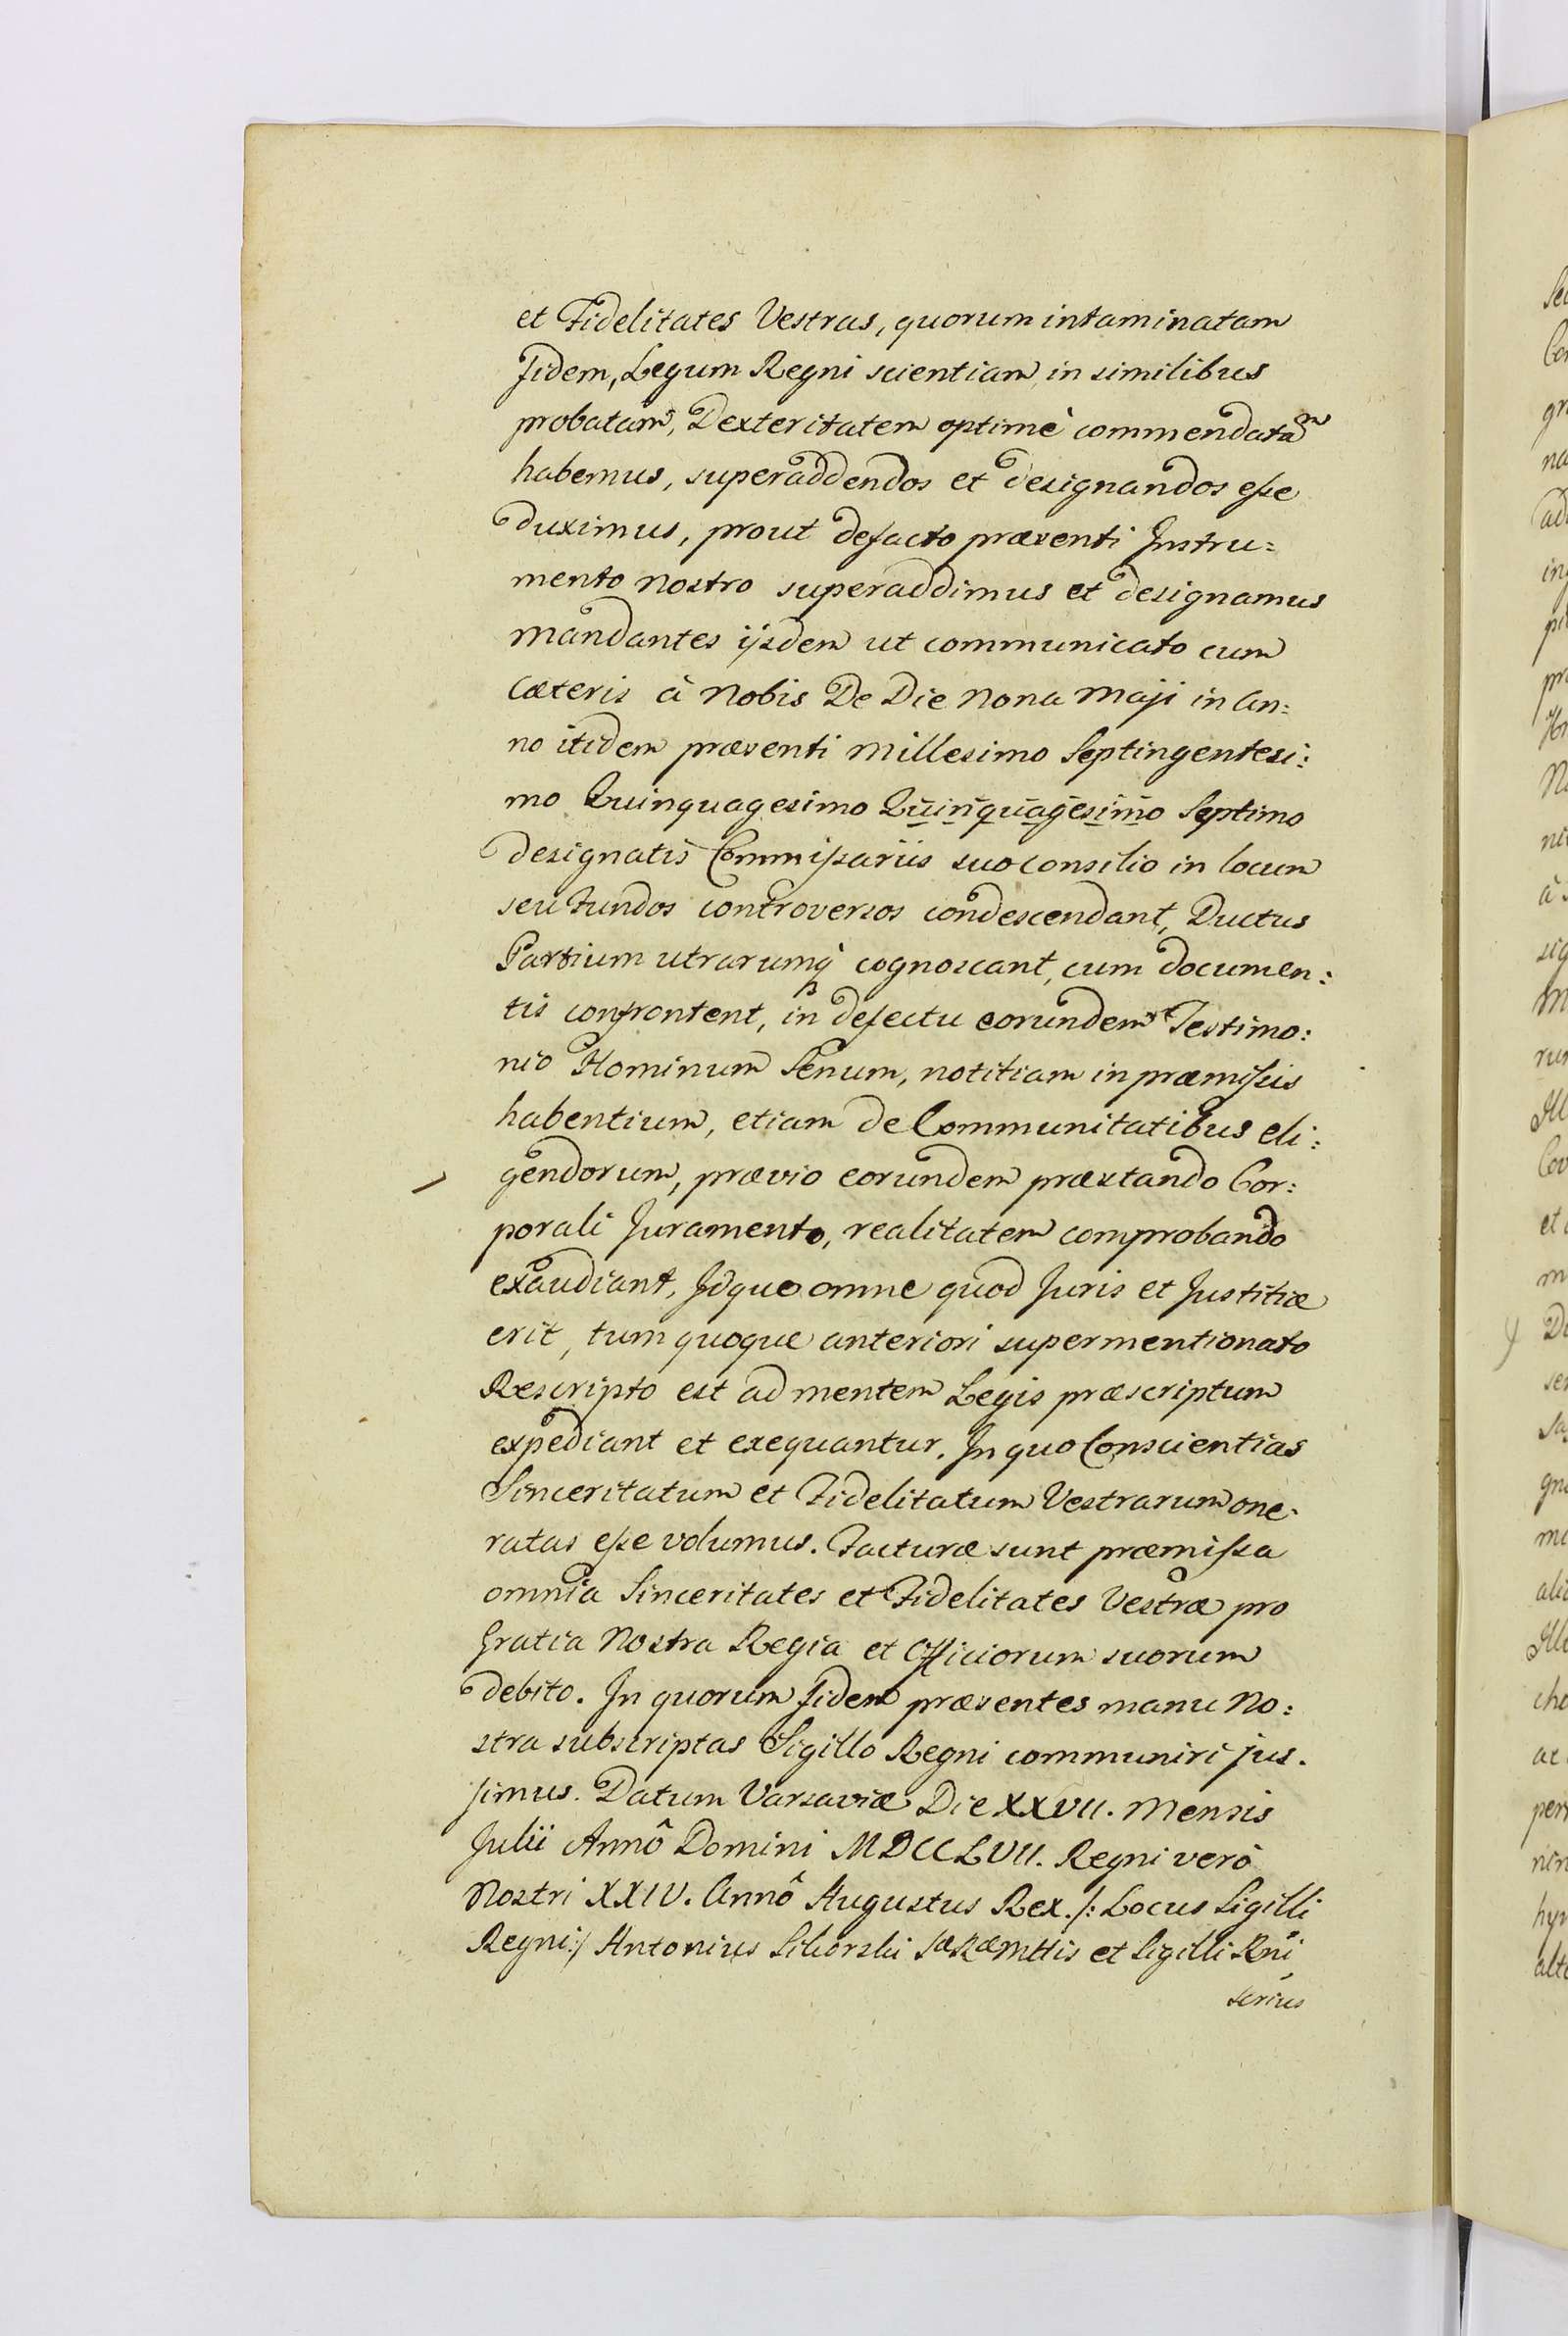 et Fidelitates Vestras, quorum intaminatam
fidem, Legum Regni scientiam in similibus
probatam, Dexteritatem optimè commendatam
habemus, superaddendos et designandos eſse
duximus, prout defacto præsenti Instru=
mento nostro superaddimus et designamus
mandantes ijsdem ut communicato cum
Cæteris à Nobis De Die Nona Maji in An:
no itidem præsenti Millesimo Septingentesi:
mo Quinquagesimo Quinquagesimo Septimo
designatis Commiſsariis suo consilio in locum
seu fundos controversos condescendant, Ductus
Partium utrarumq̀ cognoscant, cum documen:
tis confrontent, in defectu eorundem Testimo:
nio Hominum Senum, notitiam in præmiſsis
habentium, etiam de Communitatibus eli:
gendorum, prævio eorundem præstando Cor:
porali Juramento, realitatem comprobando
exaudiant, Idque omne quod Juris et Justitiæ
erit, tum quoque anteriori supermentionato
Rescripto est ad mentem Legis præscriptum
expediant et exequantur. In quo Conscientias
Sinceritatum et Fidelitatum Vestrarum one:
ratas eſse volumus. Facturæ sunt præmiſsa
omnia Sinceritates et Fidelitates Vestræ pro
Gratia Nostra Regia et Officiorum suorum
debito. In quorum fidem præsentes manu No:
stra subscriptas Sigillo Regni communiri jus.
simus. Datum Varsaviæ Die XXVII. Mensis
Julii Annô Domini MDCCLVII. Regni verò
Nostri XXIV. Annô Augustus Rex. /: Locus Sigilli
Regni :/ Antonius Sikorski SæRæMttis et Sigilli Rni
scrius